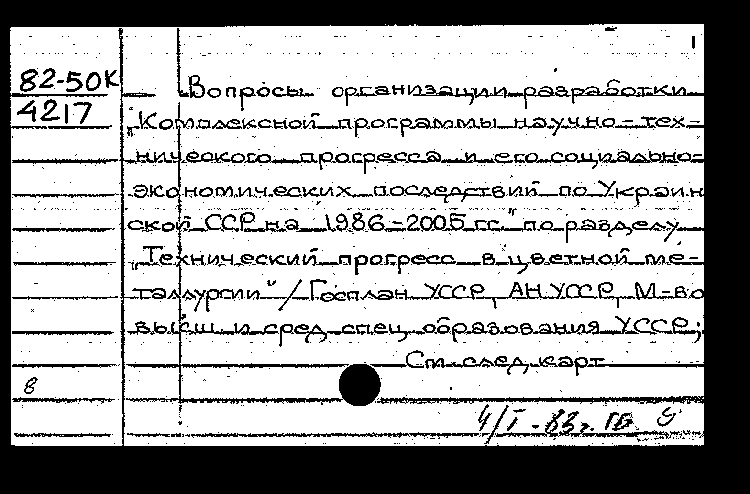 1
82-50К
4217
Вопросы организации разработки
"Комплексной программы научно-тех-
нического прогресса и его социально-
экономических последствий по Украин
ской ССР на 1986-2005 гг." по разделу
"Технический прогресс в цветной ме-
таллургии" / Госплан УССР, АН УССР, М-во
высш и сред спец образования УССР;
См. след. карт
8
4/I-83г.